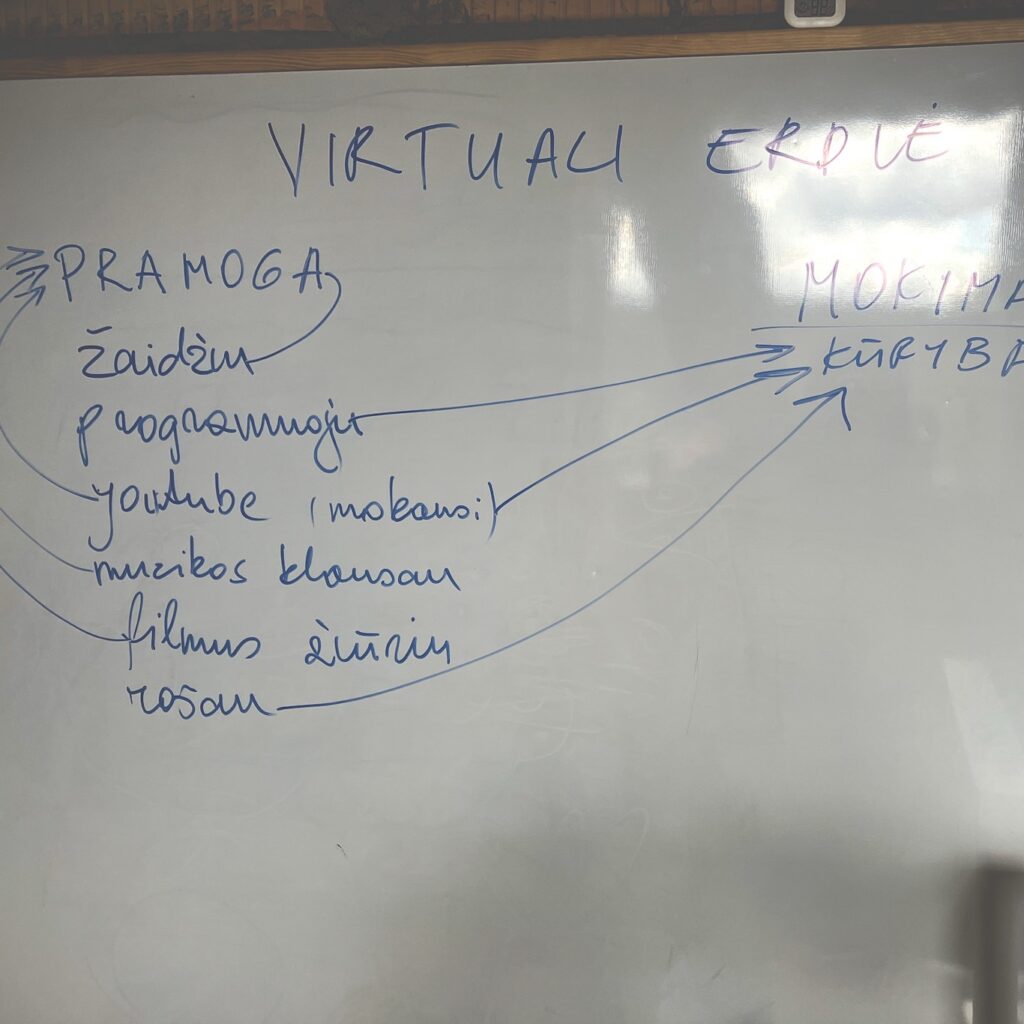 VIRTUALI ERDVĖ
PRAMOGA
MOKIMA
KŪRYBA
žaidžiu
programuoju
youtube (mokausi)
muzikos klausau
filmus žiūriu
rašau